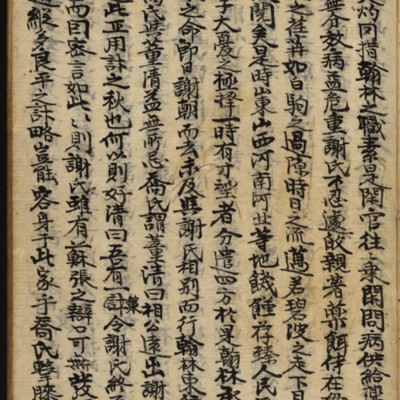 灼罔措翰林之職素是閑官往〃乘閑問病供給
無效病益危重謝氏不忍遽親著藥餌侍在
之荏苒如白駒之過隙時日之流邁若碧波之走下日
閱矣是時山東山西河南河北等地饑饉荐臻人民
子大憂之極擇一時有才望者分遣四方於是翰林承
之命即日謝朝而去未及與謝氏相別而行翰林東
喬氏與董清益無所忌喬氏謂董清曰相公遠出謝
此正用計之秋也何以則好清曰吾有一計令謝氏終
而曰密言如此〃則謝氏雖有蘇張之辯口可無發
縱多良平之計略豈能容身于此家乎喬氏擊膝